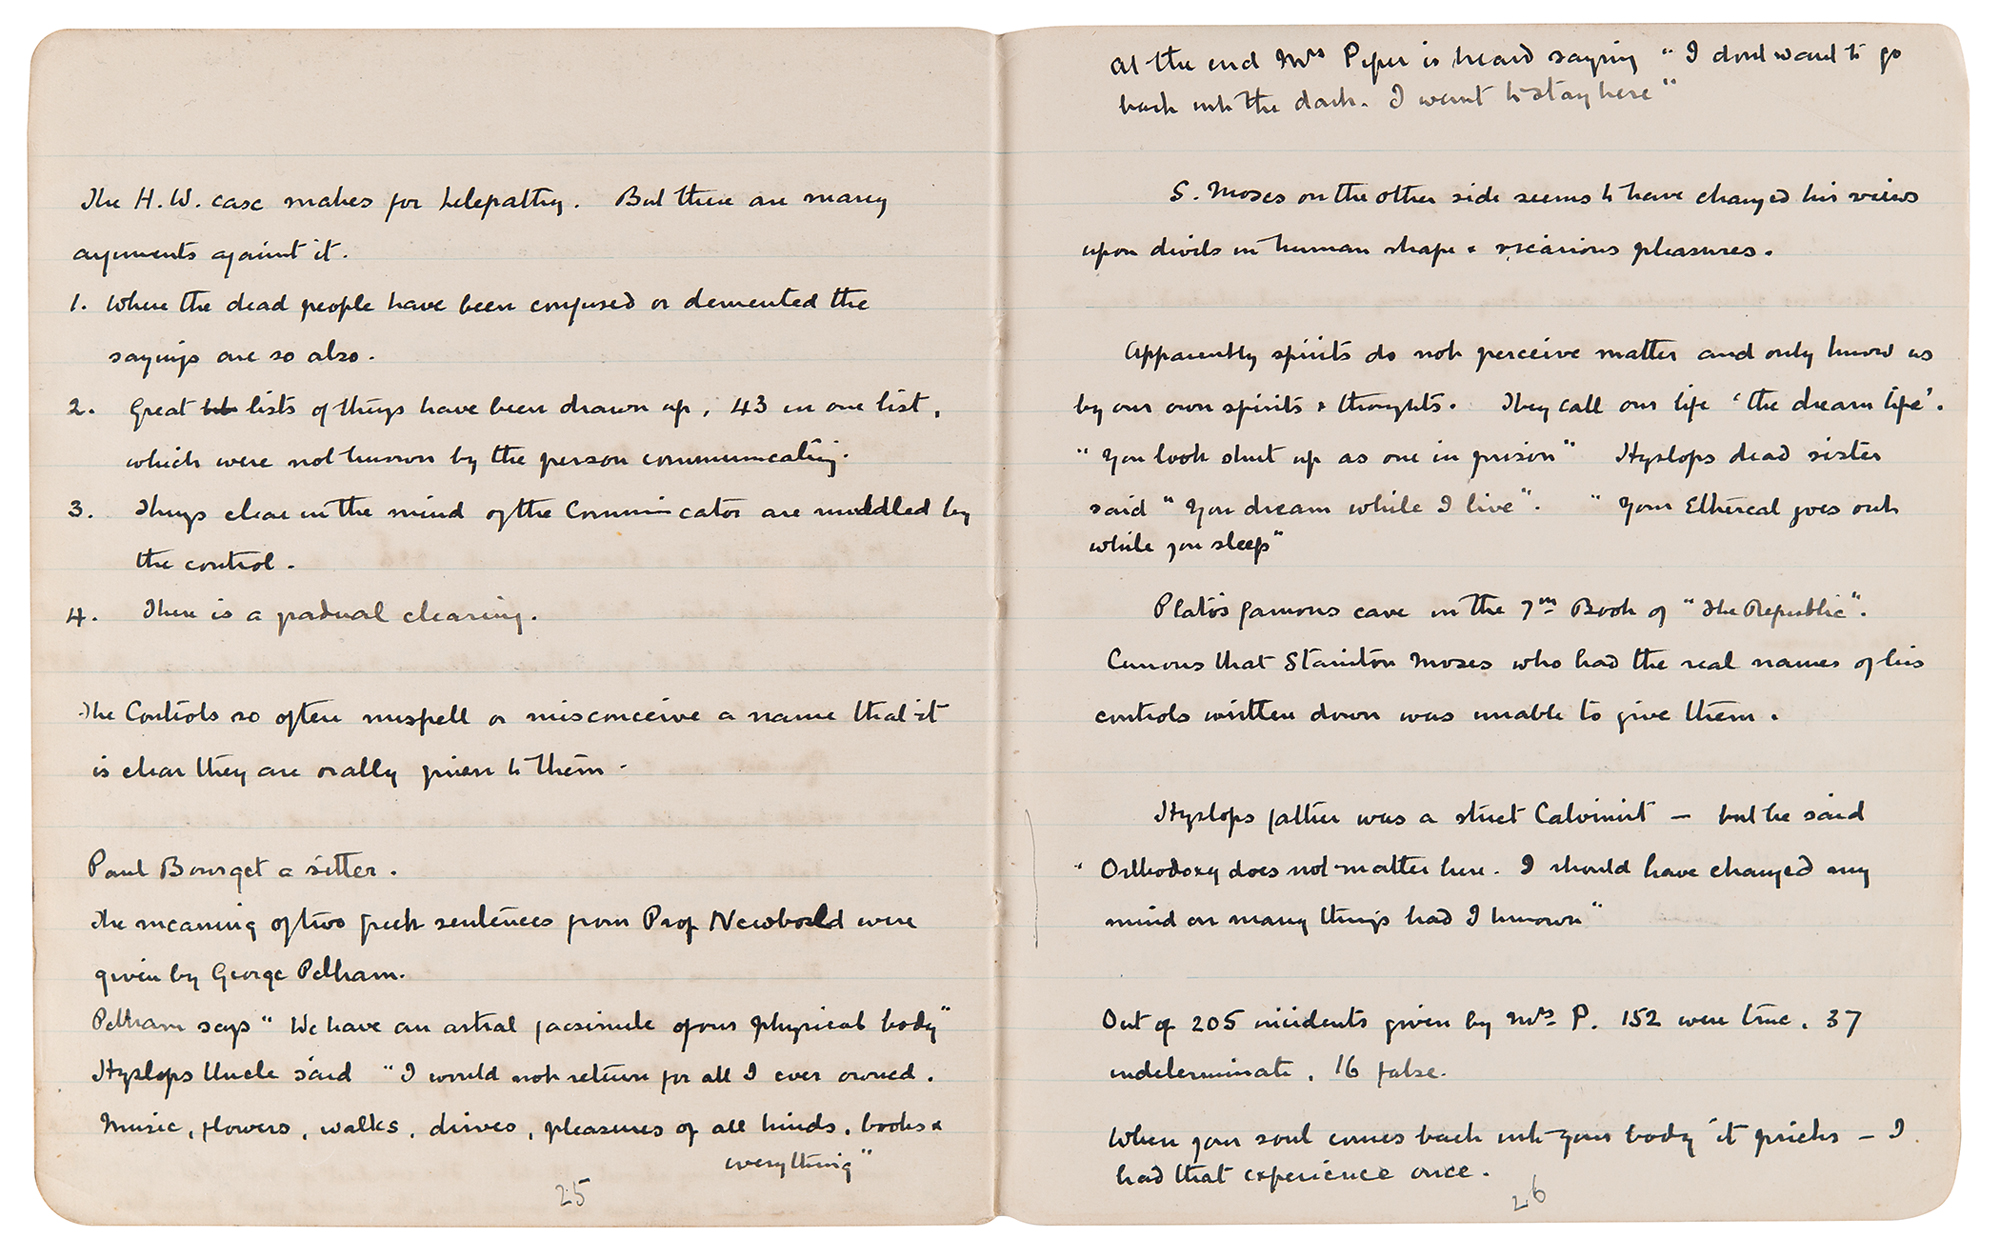 The H.W. case makes for telepathy. But there are many
arguments against it.
1. Where the dead people have been confused or demented the
sayings are so also.
2. Great lists of things have been drawn up, 43 in one list,
which were not known by the person communicating.
3. Things clear in the mind of the Communicator are muddled by
the control.
4. There is a gradual clearing.
The Controls so often misspell or misconceive a name that it
is clear they are orally given to them.
Paul Bourget a sitter.
The meaning of two greek sentences from Prof Newbold were
given by George Pelham.
Pelham says "We have an astral facsimile of our physical body"
Hyslops Uncle said "I would not return for all I ever owned.
Music, flowers, walks, drives, pleasures of all kinds, books &
everything"
25
At the end Mrs Piper is heard saying "I dont want to go
back into the dark. I want to stay here"
S. Moses on the other side seems to have changed his views
upon divils in human shape & vicarious pleasures.
Apparently spirits do not perceive matter and only know us
by our own spirits & thoughts. They call our life 'the dream life'.
"You look shut up as one in prison" Hyslops dead sister
said "You dream while I live". "Your Ethereal goes out
while you sleep"
Plato's famous cave in the 7th Book of "The Republic".
Curious that Stainton Moses who had the real names of his
controls written down was unable to give them.
Hyslops father was a strict Calvinist — but he said
"Orthodoxy does not matter here. I should have changed my
mind on many things had I known"
Out of 205 incidents given by Mrs P. 152 were true, 37
indeterminate, 16 false.
When your soul comes back into your body it pricks — I
had that experience once.
26